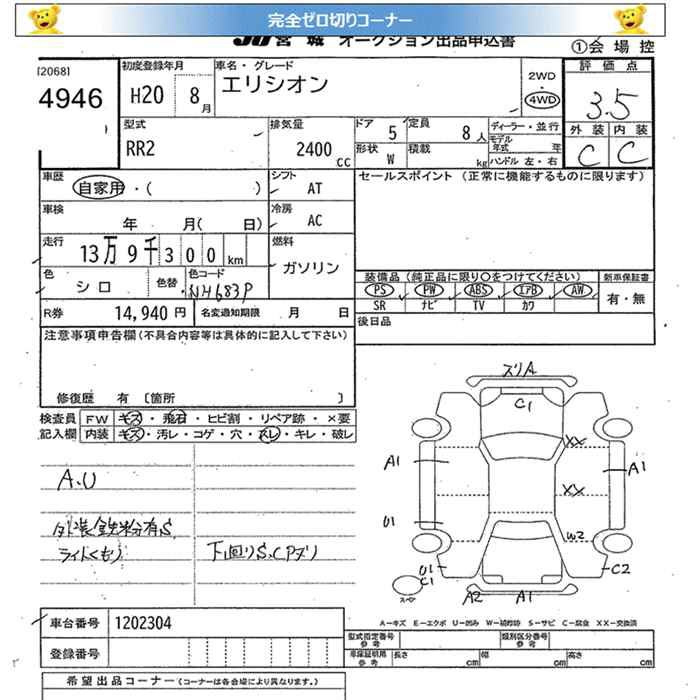 完全ゼロ切りコーナー
JU 宮 城 オークション出品申込書
①会 場 控
[2068]
4946
初度登録年月
H20 8月
車名・グレード
エリシオン
2WD
・
4WD
評 価 点
3.5
外 装 内 装
C C
型式
RR2
排気量
2400 CC
ドア 5
定員 8人
形状 W
積載 kg
ディーラー・並行
モデル年式 年
ハンドル 左・右
車歴
自家用・( )
シフト
AT
セールスポイント (正常に機能するものに限ります)
車検
年 月( 日)
冷房
AC
走行
13万9千300km
燃料
ガソリン
色
シロ
色替
色コード
NH683P
装備品 (純正品に限り○をつけてください)
新車保証書
PS PW ABS エアB AW
有・無
SR ナビ TV カワ
R券
14,940 円
名変通知期限 月 日
後日品
注意事項申告欄 (不具合内容等は具体的に記入して下さい)
修復歴 有 〔箇所 〕
検査員
記入欄
FW キズ・飛石・ヒビ割・リペア跡・×要
内装 キズ・汚レ・コゲ・穴・スレ・キレ・破レ
A.U
外装鉄粉有S
ライトくもり
下回りS.CPズリ
ズリA
C1
XX
A1
A1
XX
U1
W2
U1
C1
C2
スペア
A2
A1
車台番号 1202304
A―キズ E―エクボ U―凹み W―補修跡 S―サビ C―腐食 XX―交換済
登録番号
型式指定番号
参考
類別区分番号
参考
車庫証明用
参考
長さ cm
幅 cm
高さ cm
希望出品コーナー (コーナーは各会場により異なります。)